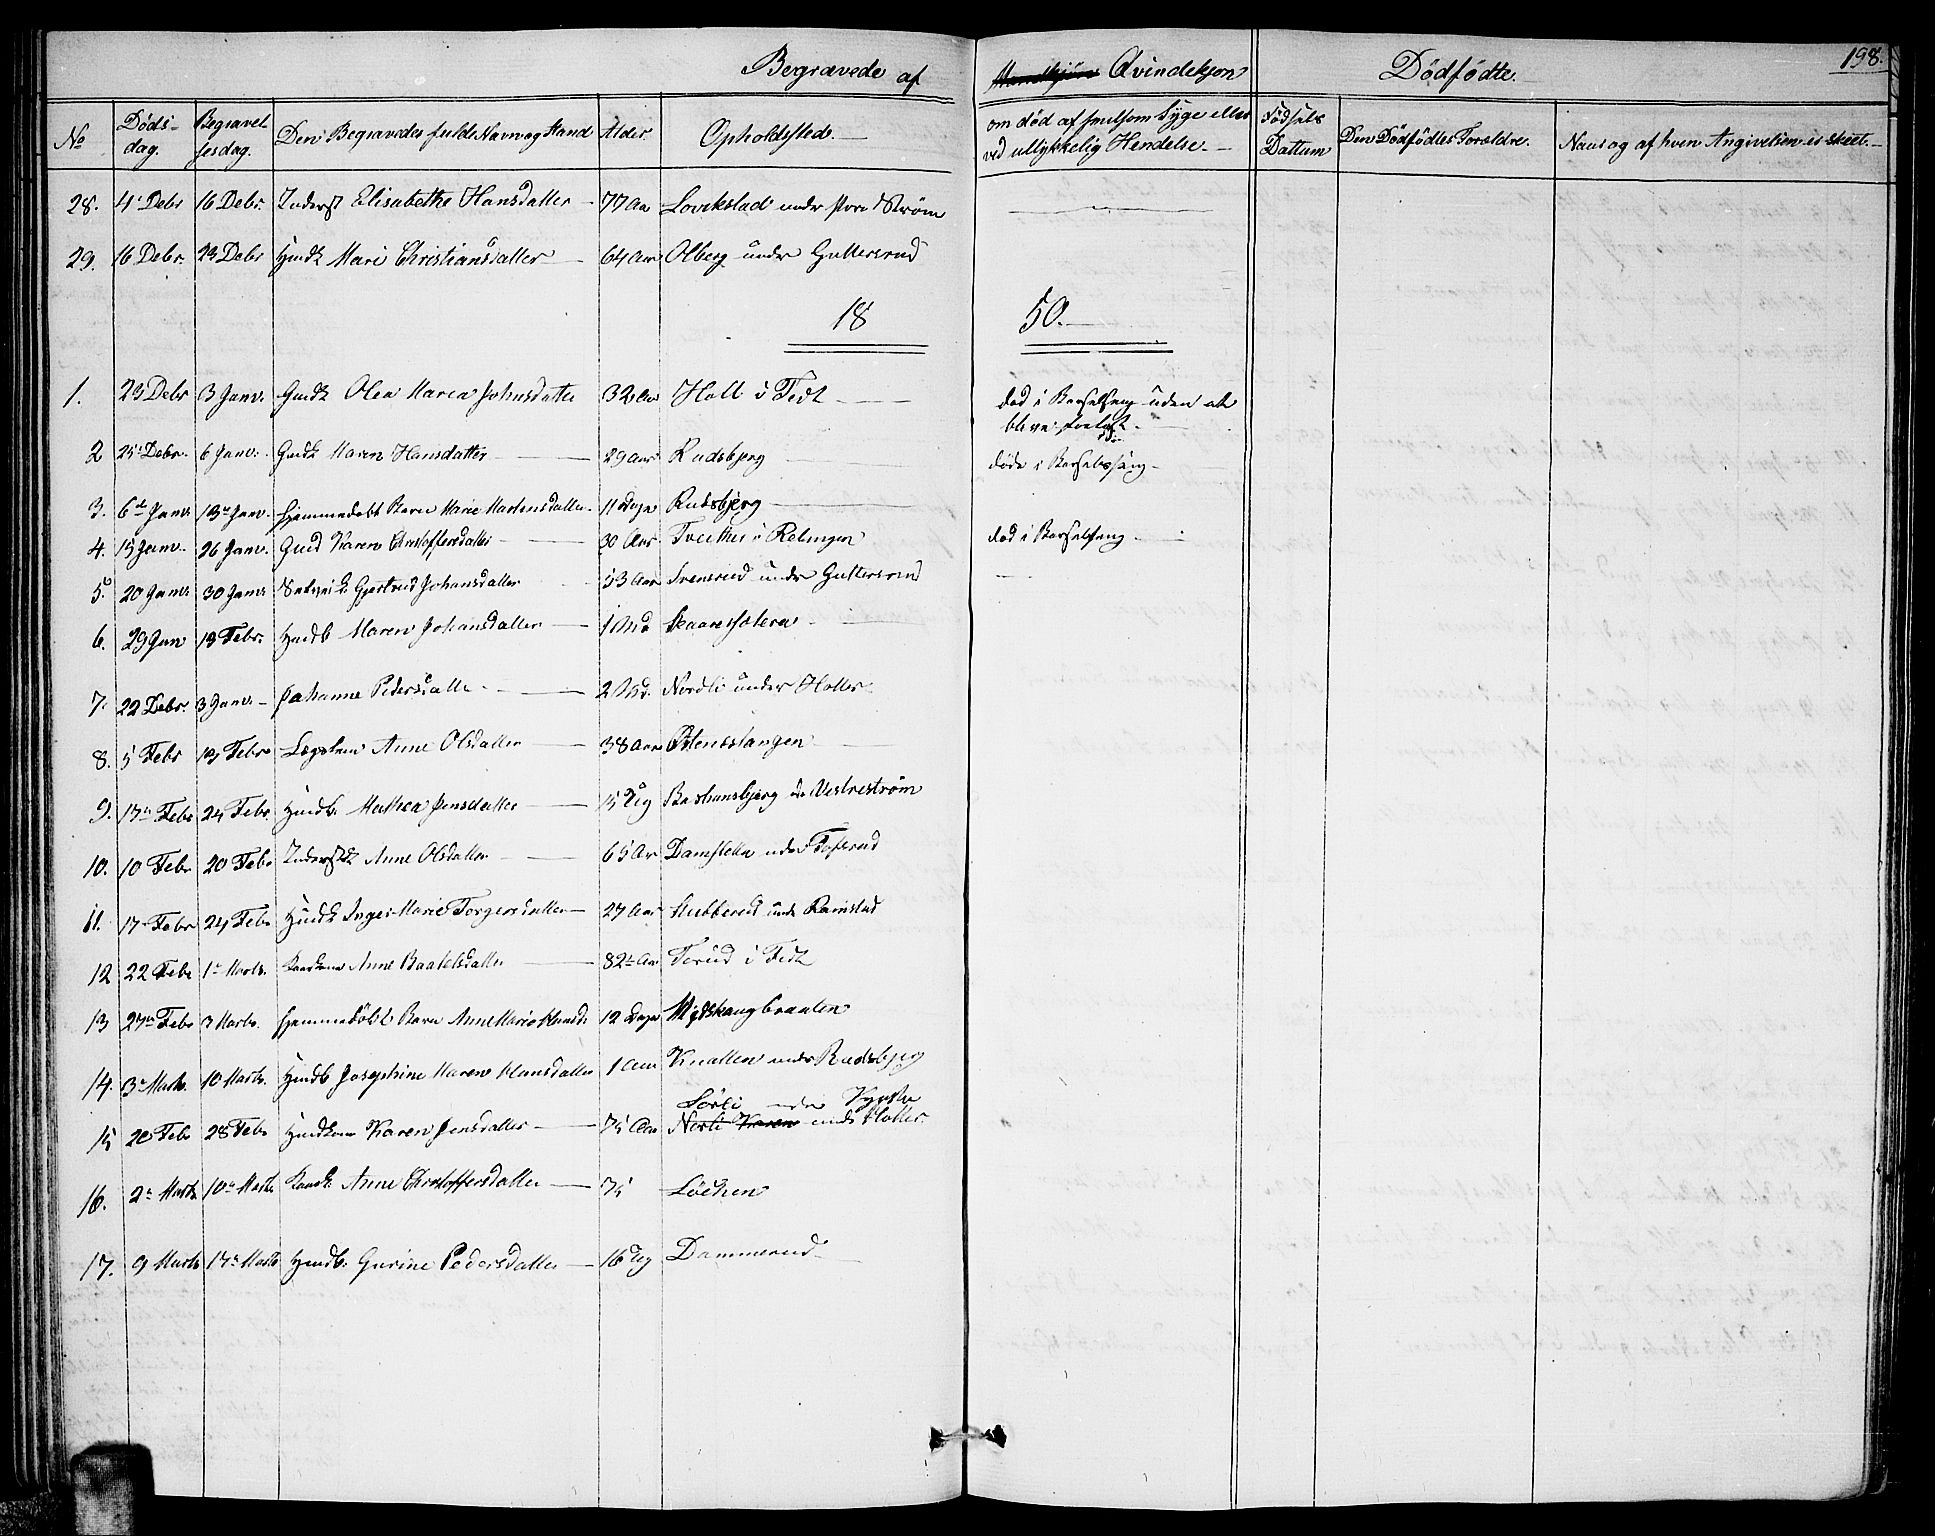 198.
Begravede af Mandkjøn Qvindekjøn Dödfödte.
No Döds-dag. Begravelsesdag. Den Begravedes fulde Navn og Stand Alder. Opholdssted. om död af smitsom Syge eller ved ulykkelig Hendelse. Födsels Dattum Den Dödfödtes Forældre. Naar og af hvem Angivelsen er skeet.
28. 4 Debr 16 Debr. Inderst Elisabethe Hansdatter 77 Aar under Ström
29. 16 Debr. 23 Debr Huusk Mari Christiansdatter 64 Aar Olberg under Guttersrud
18 50.
1. 23 Debr 3 Janr. Gudk Olea Maria Johnsdatter 32 Aar Holl i Fedt död i Barselseng uden at
blive
2 25 Debr. 6 Janr. Gudk Maren Hansdatter 29 Aar Rudsbjerg döde i Barselseng
3. 6te Janr. 13de Janr. hjemmedöbt Barn Marie Martensdatter 11 Dage Rudsbjerg
4. 15 Janr. 26 Janr. Gud Karen Christoffersdatter 30 Aar i död i Barselseng
5. 20 Janr 30 Janr Gjertrud Johansdatter 33 Aar Svensrud under Guttersrud
6. 29 Jan 13 Febr. Husb Maren Johansdatter 1 Md
7. 22 Debr. 3 Janr. Johanne Pedersdatter 2 Md. Nordli under Holter
8. 5 Febr 13 Febr Lægslem Anne Olsdatter 38 Aar Östensstangen
9. 17 Febr 24 Febr. Husb. Mathea Jensdatter 15 Ug Vestreström
10. 10 Febr 20 Febr Inderstk Anne Olsdatter 65 Ar Damstella under Tofsrud
11. 17 Febr 24 Feb Husk Inger Marie Torgersdatter 27 Aar Stubberud unde Ramstad
12 22 Febr 1 Marts. Anne Baatelsdatter 82 Aar i Fedt
13 27 Febr 3 Marts. hjemmedöbt Barn Anne Marie Hansd 12 Dage Midskaugbraaten
14. 3 Marts. 10 Marts. Husb Josephine Maren Hansdatter 1 Aar Knatten under Rudsbjerg
15 20 Feb 28 Febr Karen Jensdatter 75 Aar Nerli Karen under Holter.
16. 2 Marts 10 Marts Anne Christoffersdatter 75 Löchen
17. 9 Marts 17 Marts Husb. Gurine Pedersdatter 16 Ug Dammerud